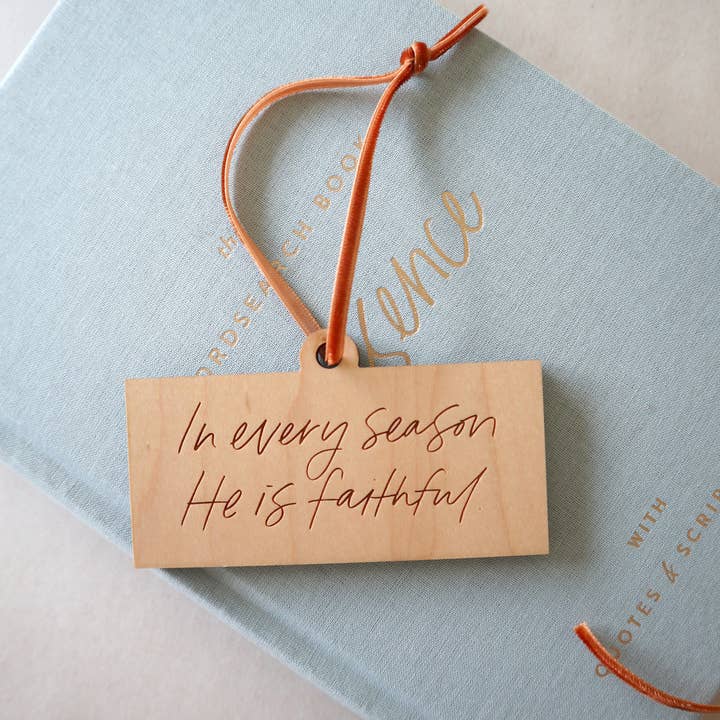 In every season
He is faithful
the
WORDSEARCH BOOK
WITH
QUOTES & SCRIP